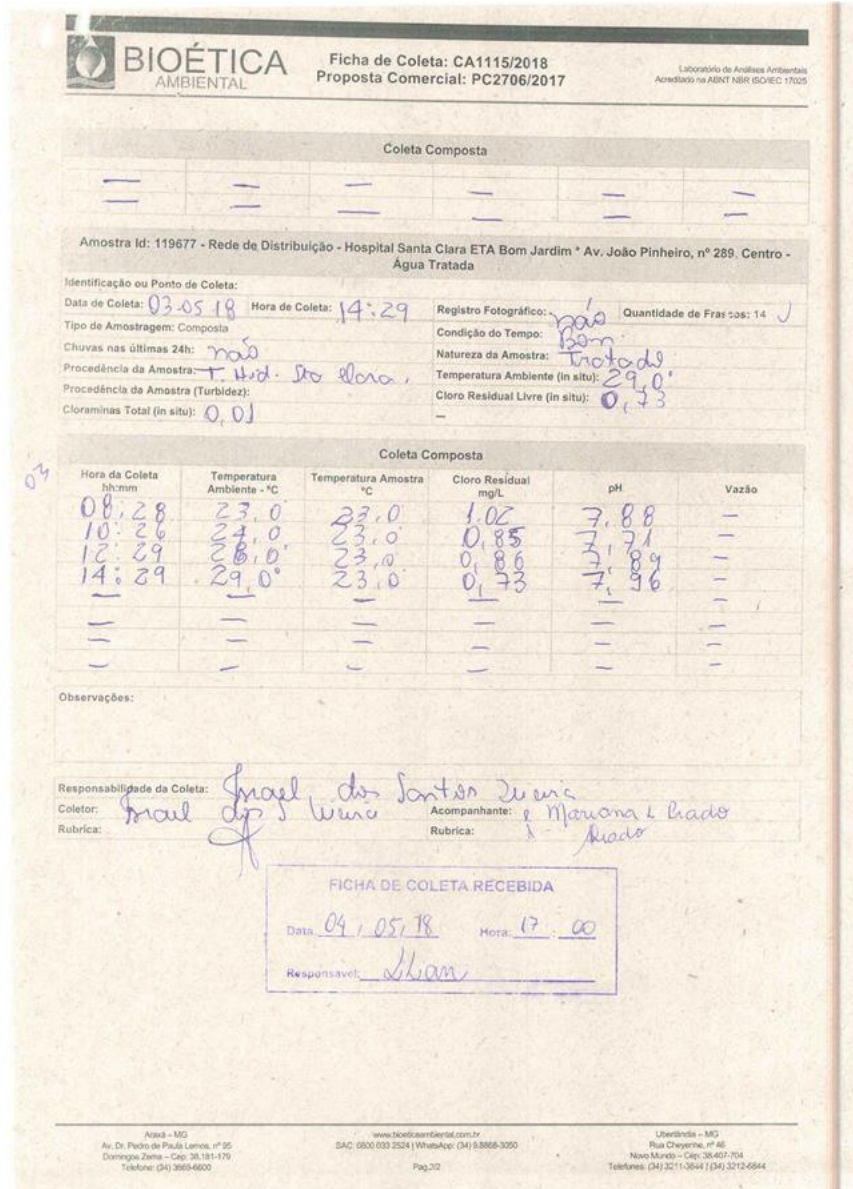 BIOÉTICA
AMBIENTAL
Ficha de Coleta: CA1115/2018
Proposta Comercial: PC2706/2017
Laboratório de Análises Ambientais
Acreditado na ABNT NBR ISO/IEC 17025
Coleta Composta
— — — — — —
— — — — — —
Amostra Id: 119677 - Rede de Distribuição - Hospital Santa Clara ETA Bom Jardim * Av. João Pinheiro, nº 289. Centro -
Água Tratada
Identificação ou Ponto de Coleta:
Data de Coleta: 03.05.18 Hora de Coleta: 14:29 Registro Fotográfico: não Quantidade de Frascos: 14
Tipo de Amostragem: Composta Condição do Tempo: Bom.
Chuvas nas últimas 24h: não Natureza da Amostra: Tratada
Procedência da Amostra: T. Hid. Sta Clara. Temperatura Ambiente (in situ): 29,0°
Procedência da Amostra (Turbidez): Cloro Residual Livre (in situ): 0,73
Cloraminas Total (in situ): 0,01 —
Coleta Composta
Hora da Coleta hh:mm Temperatura Ambiente - ºC Temperatura Amostra ºC Cloro Residual mg/L pH Vazão
08:28 23,0 23,0 1.02 7,88 —
10:26 24,0 23,0 0,85 7,71 —
12:29 28,0° 23,0 0,86 7,89 —
14:29 29,0° 23,0 0,73 7,96 —
— — — — — —
— — — — — —
— — — — — —
— — — — — —
Observações:
Responsabilidade da Coleta: Israel dos Santos Vieira
Coletor: Israel dos S Vieira Acompanhante: Mariana L Prado
Rubrica: Rubrica: Prado
FICHA DE COLETA RECEBIDA
Data: 04 / 05 / 18 Hora: 17 : 00
Responsável: Lilian
Araxá – MG
Av. Dr. Pedro de Paula Lemos, nº 95
Domingos Zema – Cep: 38.181-179
Telefone: (34) 3669-6600
www.bioeticaambiental.com.br
SAC: 0800 033 2524 | WhatsApp: (34) 9.8868-3050
Pag.2/2
Uberlândia – MG
Rua Cheyenne, nº 46
Novo Mundo – Cep: 38.407-704
Telefones: (34) 3211-3644 / (34) 3212-6844